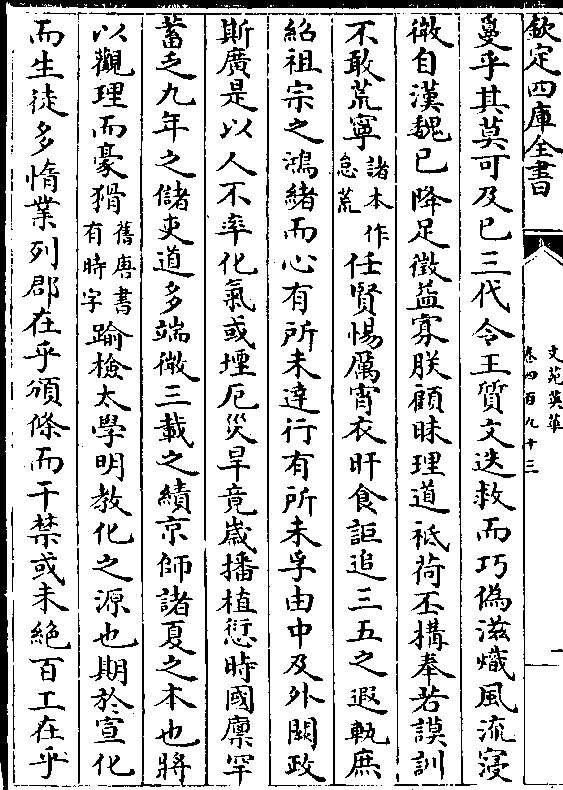 欽定四庫全書
文苑英華
卷四百九十三
一
戞乎其莫可及已三代令王質文迭救而巧偽滋熾風流寖
微自漢魏已降足徵葢寡朕顧昧理道祗荷丕構奉若謨訓
不敢荒寧諸本作怠荒任賢惕厲宵衣旰食詎追三五之遐軌庶
紹祖宗之鴻緒而心有所未達行有所未孚由中及外闕政
斯廣是以人不率化氣或堙厄災旱竟歲播植愆時國廩罕
蓄乏九年之儲吏道多端微三載之績京師諸夏之本也將
以觀理而豪猾舊唐書有時字踰檢太學明教化之源也期於宣化
而生徒多惰業列郡在乎頒條而干禁或未絶百工在乎